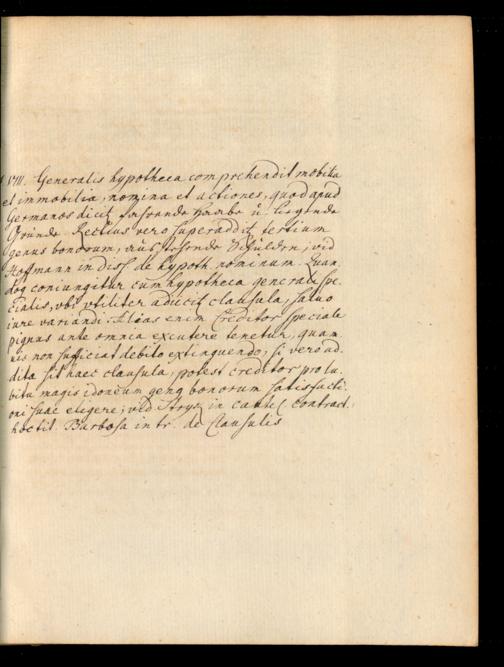 VIII. Generalis hypotheca comprehendit mobilia
et immobilia, nomina et actiones, quod apud
Germanos dicit fahrende Haabe ŭ. liegende
Gründe. Rectius vero superaddit tertium
genus bonorum, aŭsstehende Schŭlden, vid
Hoffmann in diss de hypoth nominum. Quan
doq coniungitur cŭm hypotheca generali spe
cialis, ubi vtiliter adiicit clausula, saluo
iure variandi. Alias enim Creditor speciale
pignus ante omnia excutere tenetur, quam
uis non sufficiat debito extinguendo, si vero ad
dita sit haec clausula, potest creditor pro lu
bitu magis idoneum genq bonorum satisfacti
oni suae elegere, vid Stryq in cautel contract.
hoc tit. Barbosa in tr. de Clausulis